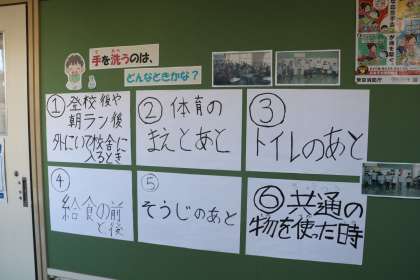 手を洗うのは、
どんなときかな？
① 登校後や
朝ラン後
外にいて校舎に
入るとき
② 体育の
まえとあと
③
トイレのあと
④
給食の前
と、後
⑤
そうじのあと
⑥ 共通の
物を使った時